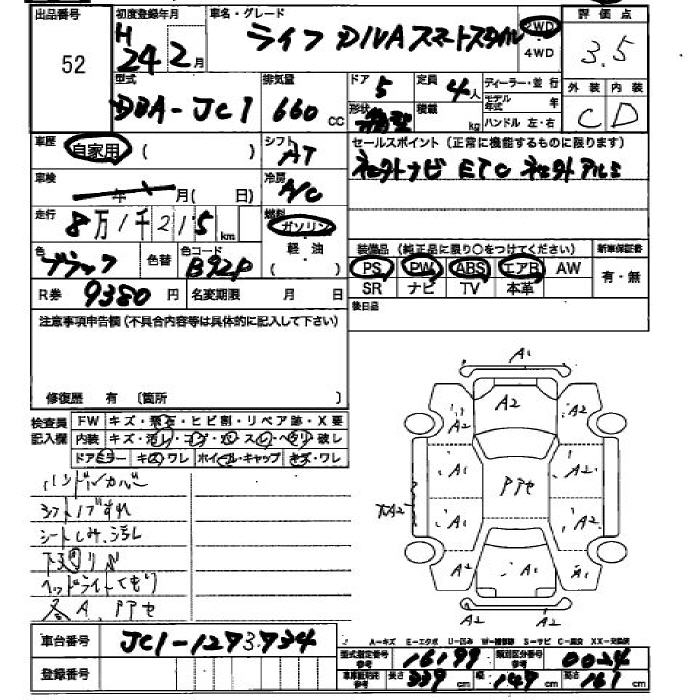 出品番号 52
初度登録年月 H 24 2月
車名・グレード ライフ DIVA スマートスタイル
2WD
4WD
評価点 3.5
型式 DBA-JC1
排気量 660 cc
ドア 5
定員 4人
形状
積載 kg
ディーラー・並行
モデル年式 年
ハンドル 左・右
外装 内装
C D
車歴 自家用 ( )
シフト AT
セールスポイント (正常に機能するものに限ります)
ナビ ETC アルミ
車検 年 月( 日)
冷房 A/C
走行 8万1千215 km
燃料 ガソリン
軽油
( )
色 ブラック
色替
色コード B92P
装備品 (純正品に限り○をつけてください)
新車保証書
PS PW ABS エアB AW
SR ナビ TV 本革
有・無
R券 9380円
名変期限 月 日
後日品
注意事項申告欄 (不具合内容等は具体的に記入して下さい)
修復歴 有 〔箇所 〕
検査員記入欄
FW キズ・飛石・ヒビ割・リペア跡・X要
内装 キズ・汚レ・コゲ・穴・スレ・ヘタリ・破レ
ドアミラー キズ・ワレ ホイール・キャップ キズ・ワレ
ハンドルカバー
シフトノブすれ
シートしみ、汚れ
下廻りサビ
ヘッドライトくもり
各A、PPセ
A1
A2
A2
A2
A1
A2
PPセ
A2
A1
A2
A2
A2
A1
A2
車台番号 JC1-1273734
登録番号
A-キズ E-エクボ U-凹み W-補修跡 S-サビ C-腐食 XX-交換済
型式指定番号 参考 16199
類別区分番号 参考 0024
車庫証明用 参考 長さ 339 cm 幅 147 cm 高さ 161 cm